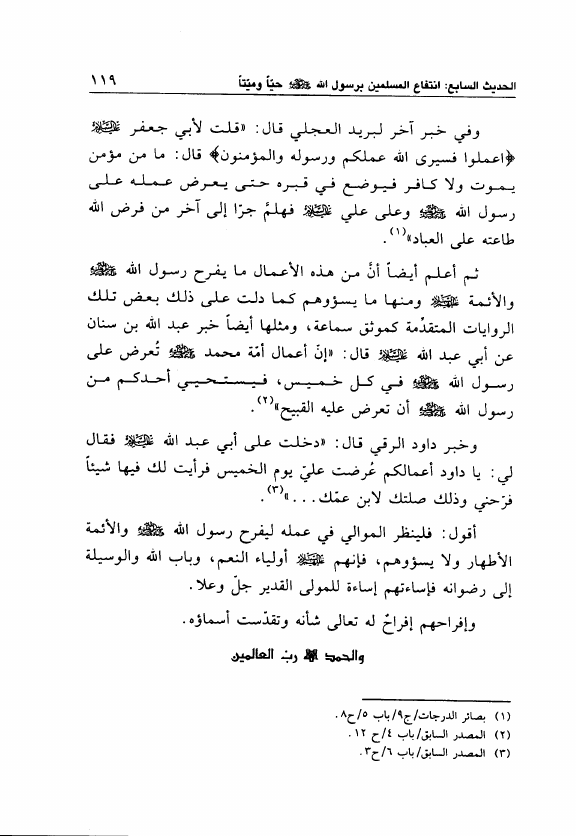 الحديث السابع: انتفاع المسلمين برسول الله ﷺ حيّاً وميّتاً ١١٩
وفي خبر آخر لبريد العجلي قال: «قلت لأبي جعفر عليه السلام
﴿اعملوا فسيرى الله عملكم ورسوله والمؤمنون﴾ قال: ما من مؤمن
يموت ولا كافر فيوضع في قبره حتى يعرض عمله على
رسول الله ﷺ وعلى علي عليه السلام فهلمّ جرّا إلى آخر من فرض الله
طاعته على العباد»(١).
ثم أعلم أيضاً أنَّ من هذه الأعمال ما يفرح رسول الله ﷺ
والأئمة عليهم السلام ومنها ما يسؤوهم كما دلت على ذلك بعض تلك
الروايات المتقدِّمة كموثق سماعة، ومثلها أيضاً خبر عبد الله بن سنان
عن أبي عبد الله عليه السلام قال: «إنّ أعمال أمّة محمد ﷺ تُعرض على
رسول الله ﷺ في كل خميس، فيستحيي أحدكم من
رسول الله ﷺ أن تعرض عليه القبيح»(٢).
وخبر داود الرقي قال: «دخلت على أبي عبد الله عليه السلام فقال
لي: يا داود أعمالكم عُرضت عليّ يوم الخميس فرأيت لك فيها شيئاً
فرّحني وذلك صلتك لابن عمّك...»(٣).
أقول: فلينظر الموالي في عمله ليفرح رسول الله ﷺ والأئمة
الأطهار ولا يسؤوهم، فإنهم عليهم السلام أولياء النعم، وباب الله والوسيلة
إلى رضوانه فإساءتهم إساءة للمولى القدير جلّ وعلا.
وإفراحهم إفراحٌ له تعالى شأنه وتقدّست أسماؤه.
والحمد لله ربّ العالمين
(١) بصائر الدرجات/ج٩/باب ٥/ح٨.
(٢) المصدر السابق/باب ٤/ح ١٢.
(٣) المصدر السابق/باب ٦/ح٣.